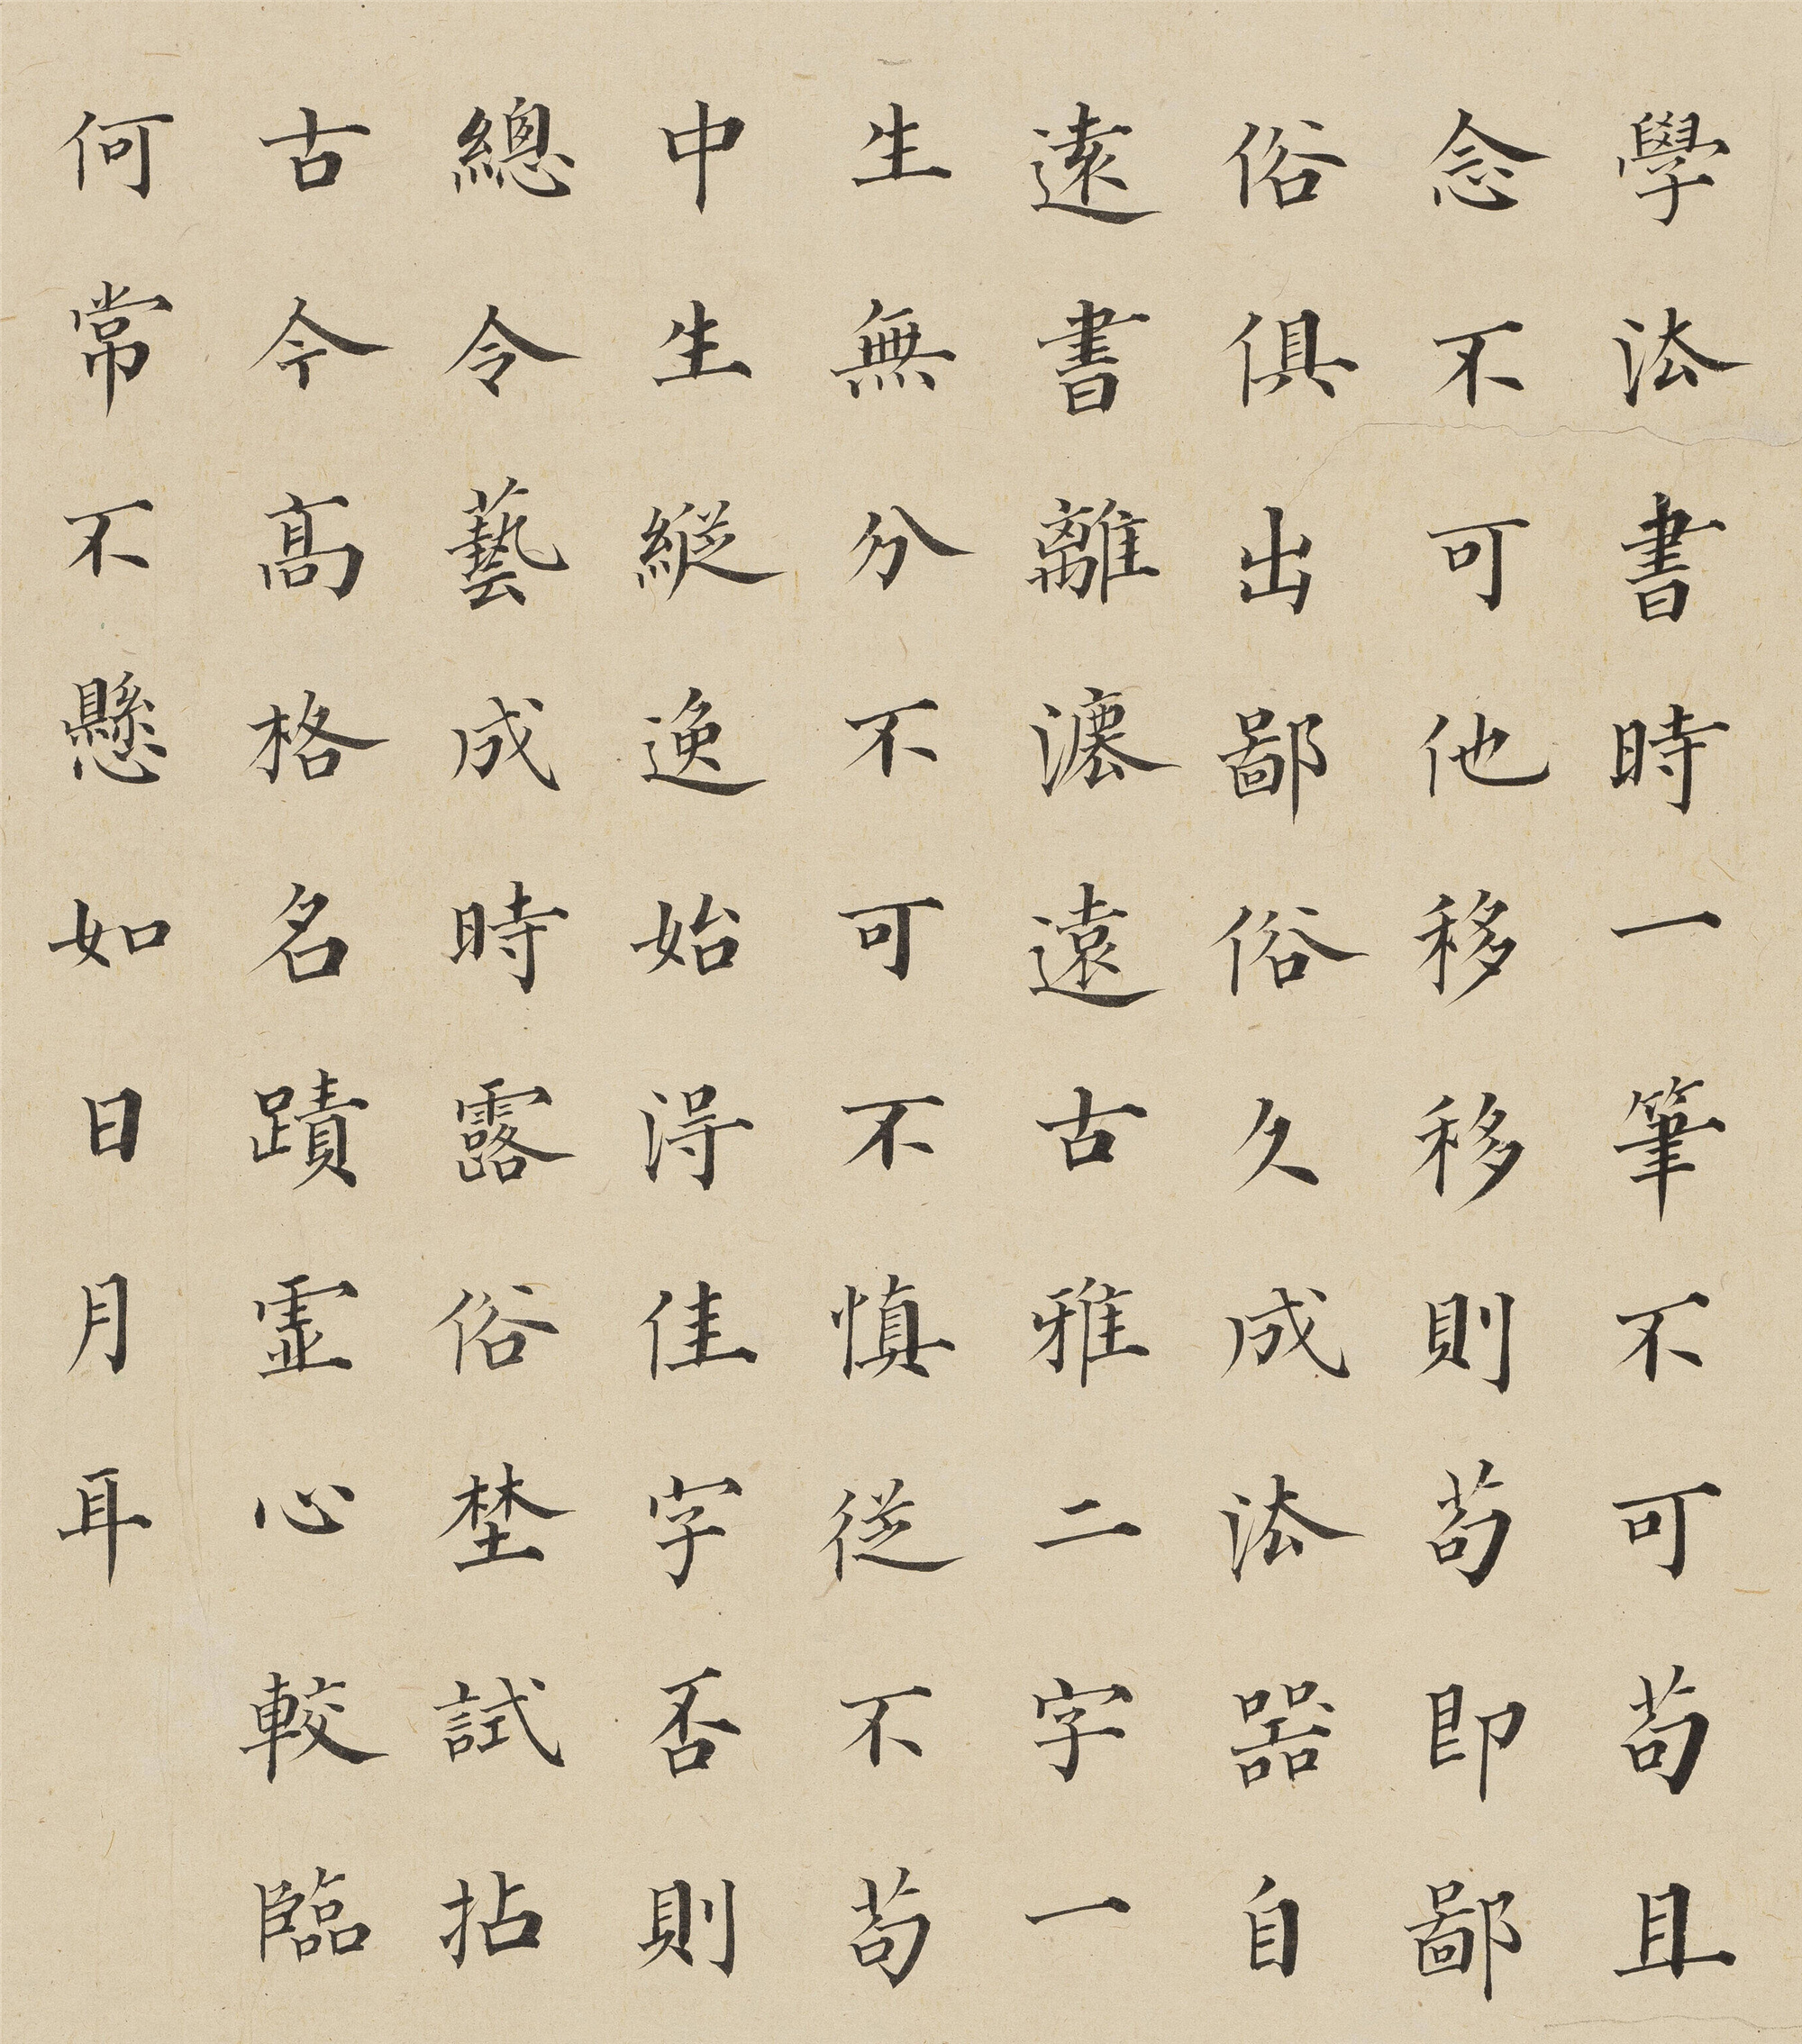 學法書時一筆不可苟且
念不可他移移則苟即鄙
俗俱出鄙俗久成法器自
遠書離濃遠古雅二字一
生無分不可不慎從不苟
中生縱逸始得佳字否則
總令藝成時露俗埜試拈
古今高格名蹟虛心較臨
何常不懸如日月耳